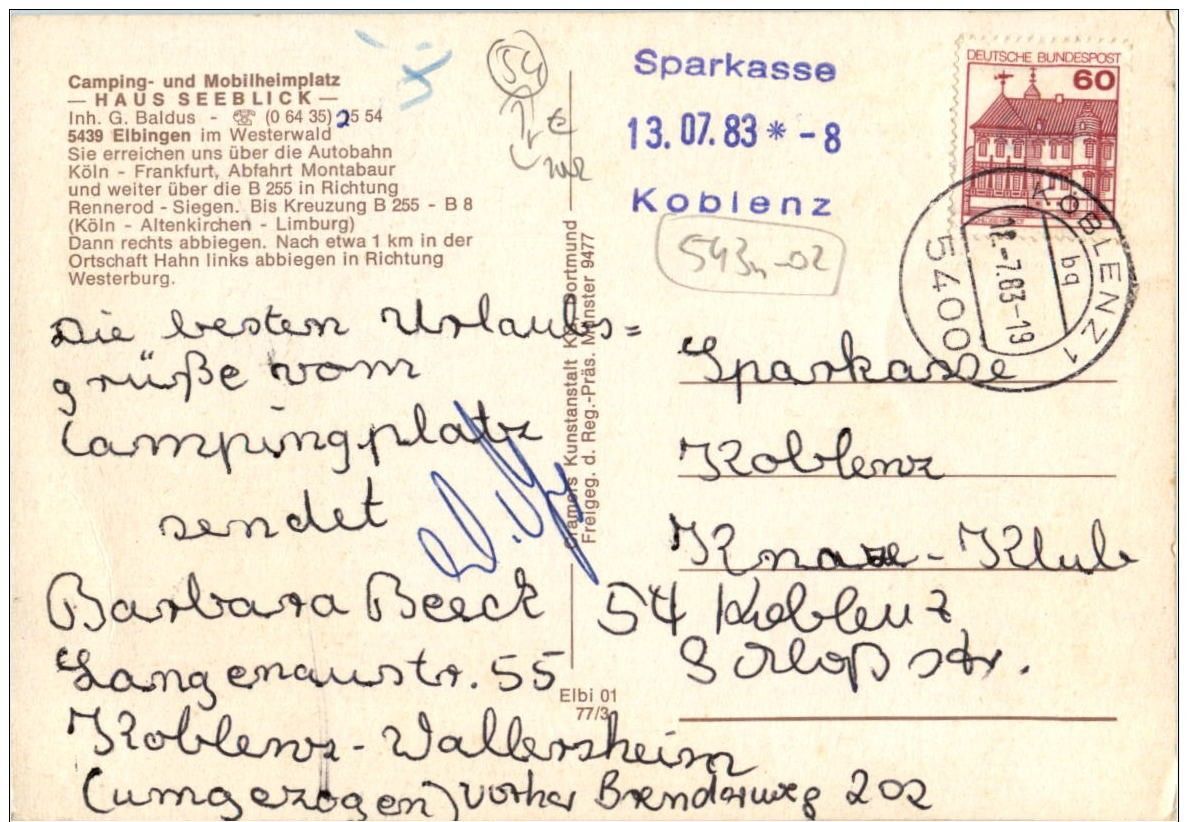 Camping- und Mobilheimplatz
— HAUS SEEBLICK —
Inh. G. Baldus - ☎ (0 64 35) 25 54
5439 Elbingen im Westerwald
Sie erreichen uns über die Autobahn
Köln - Frankfurt, Abfahrt Montabaur
und weiter über die B 255 in Richtung
Rennerod - Siegen. Bis Kreuzung B 255 - B 8
(Köln - Altenkirchen - Limburg)
Dann rechts abbiegen. Nach etwa 1 km in der
Ortschaft Hahn links abbiegen in Richtung
Westerburg.
Die besten Urlaubs=
grüße vom
Campingplatz
sendet
Barbara Beeck
Langenaustr. 55
Koblenz-Wallersheim
(umgezogen) vorher Brenderweg 202
54
Cramers Kunstanstalt KG, Dortmund
Freigeg. d. Reg.-Präs. Münster 9477
Elbi 01
77/3
Sparkasse
13.07.83 * - 8
Koblenz
DEUTSCHE BUNDESPOST
60
KOBLENZ 1
bq
12.-7.83-19
5400
Sparkasse
Koblenz
Knax-Klub
54 Koblenz
Schloßstr.